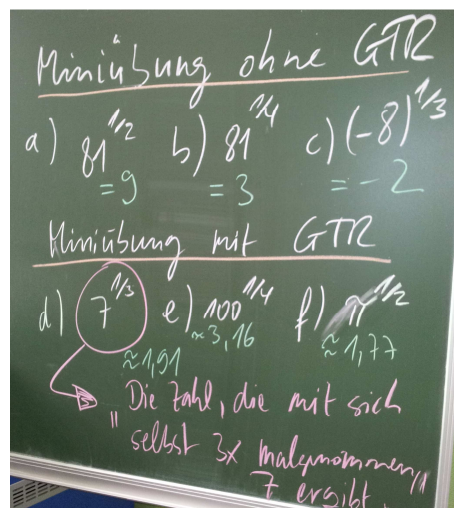 Miniübung ohne GTR
a) 81^1/2 b) 81^1/4 c) (-8)^1/3
=9 =3 =-2
Miniübung mit GTR
d) 7^1/3 e) 100^1/4 f) π^1/2
≈1,91 ≈3,16 ≈1,77
"Die Zahl, die mit sich
selbst 3x malgenommen
7 ergibt."